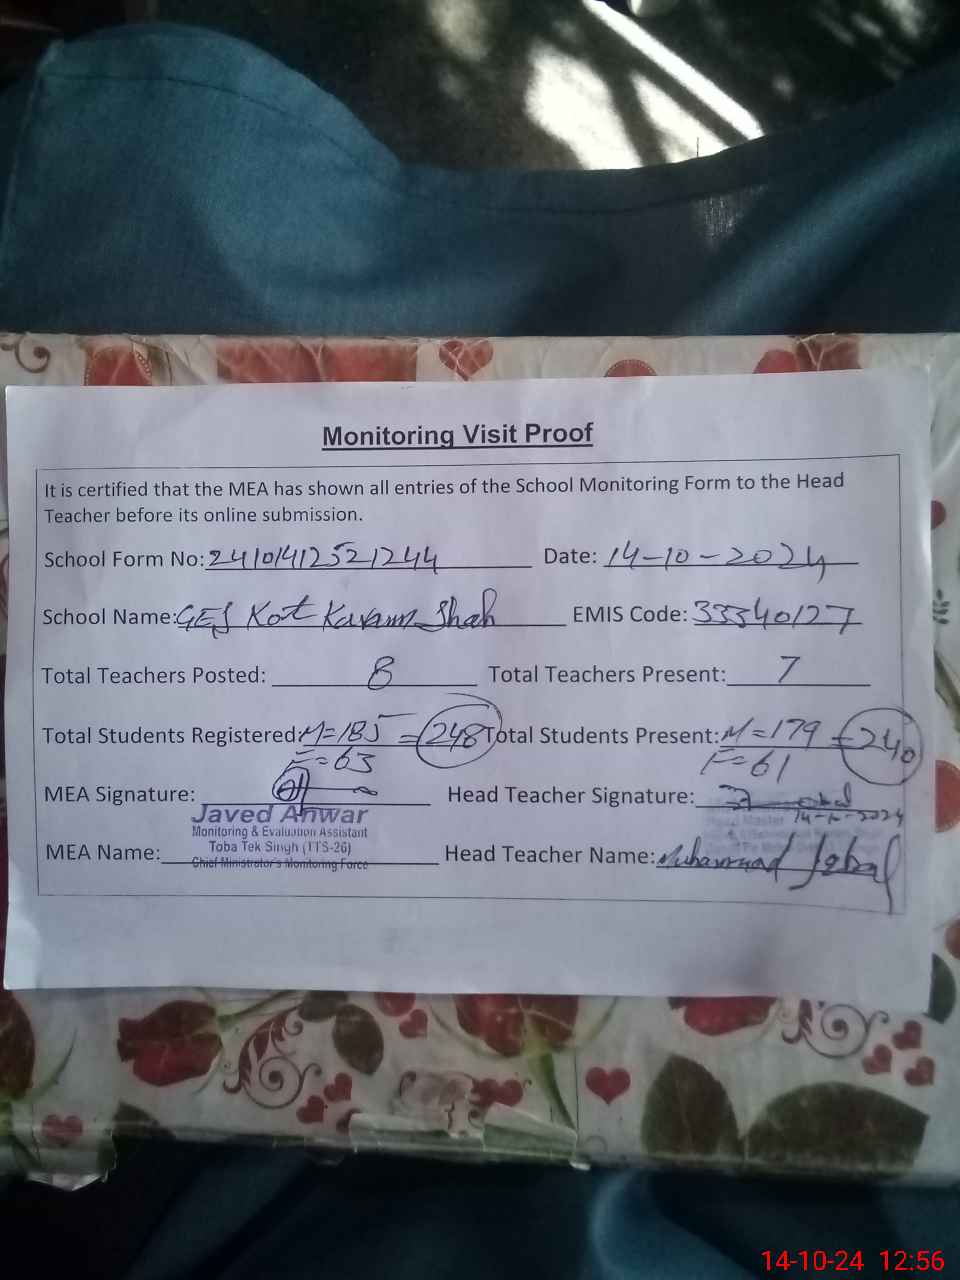 Monitoring Visit Proof
It is certified that the MEA has shown all entries of the School Monitoring Form to the Head
Teacher before its online submission.
School Form No: 24101412521244 Date: 14-10-2024
School Name: GES Kot Karam Shah EMIS Code: 33340127
Total Teachers Posted: 8 Total Teachers Present: 7
Total Students Registered: M=185 = 248 Total Students Present: M=179 = 240
F=63 F=61
MEA Signature: Head Teacher Signature:
14-10-2024
Javed Anwar
Monitoring & Evaluation Assistant
Toba Tek Singh (TTS-26)
Chief Minister's Monitoring Force
Head Master
MEA Name: Head Teacher Name: Muhammad Iqbal
14-10-24 12:56